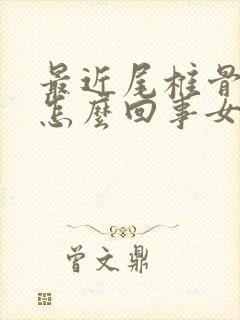 最近尾椎骨
怎麼回事女
曾文鼎